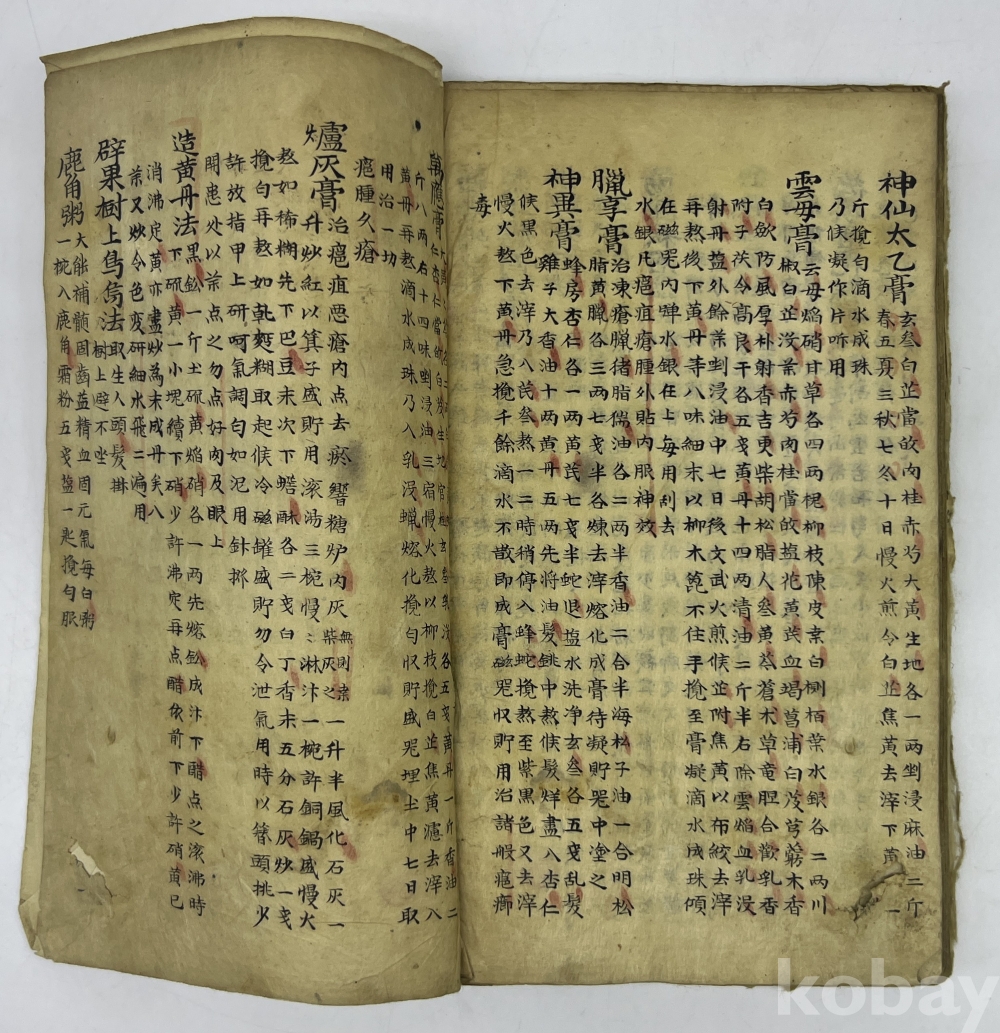 神仙太乙膏 玄參白芷當敀肉桂赤芍大黃生地各一兩剉浸麻油二斤
春五夏三秋七冬十日慢火煎令白芷焦黃去滓下黃 一
斤攪匀滴水成珠
乃候凝作片听用
雲母膏 云母焰硝甘草各四兩槐柳枝陳皮桒白側栢葉水銀各二兩川
椒白芷沒葉赤芍肉桂當敀塩花黃芪血竭菖浦白芨芎藭木香
白歛防風厚朴射香吉更柴胡松脂人叄黃芩蒼术草竜胆合歡乳香
附子茯令高良干各五戔黃丹十四兩清油二斤半右除雲焰血乳沒
射丹塩外餘葉剉浸油中七日後文武火煎候芷附焦黃以布絞去滓
再熬後下黃丹等八味細末以柳木篦不住手攪至膏凝滴水成珠傾
在磁器內啤水銀在上每用刮去
水銀凡瘟疽瘡腫外貼內服神效
臘享膏 治凍瘡臘猪脂㺀油各二兩半香油二合半海松子油一合明松
脂黃臘各三兩七戔半各煉去滓熔化成膏待凝貯器中塗之
神異膏 蜂房杏仁各一兩黃茋七戔半蛇退塩水洗净玄叄各五戔乱髮
雞子大香油十兩黃丹五兩先将油髮銚中熬候髮烊盡入杏仁
候黑色去滓乃入芪叄熬一二時稍停入蜂蛇攪熬至紫黑色又去滓
慢火熬下黃丹急攪千餘滴水不散即成膏磁器収貯用治諸般瘟癤
毒
萬應膏
斤八兩右十四味剉浸油三宿慢火熬以柳枝攪白芷焦黃濾去滓入
黃丹再熬滴水成珠乃入乳沒蠟熔化攪匀収貯盛器埋土中七日取
用治一切
瘟腫久瘡
爐灰膏 治瘟疽惡瘡內点去瘀響糖炉內灰 無則桒柴灰之 一升半風化石灰一
升炒紅以箕子盛貯用滚湯三椀慢〻淋汁一椀許銅鍋盛慢火
熬如稀糊先下巴豆末次下蟾酥各二戔白丁香末五分石灰炒一戔
攪匀再熬如乾麵糊取起候冷磁罐盛貯勿令泄氣用時以簪頭挑少
許放指甲上研呵氣調匀如泥用針撥
開患处以葉点之勿点好肉及眼上
造黃丹法 黑鈆一斤土硫黃焰硝各一兩先熔鈆成汁下醋点之滚沸時
下硫黃一小塊續下硝少許沸定再点醋依前下少許硝黃已
消沸定黃亦盡炒為末成丹矣入
葉又炒令色变研細水飛二遍用
辟果樹上鳥烏法 取生人頭髮掛
樹上避不坐
鹿角粥 大能補髓固齒益精血固元氣每白粥
一椀入鹿角霜粉五戔塩一匙攪匀服
kobay